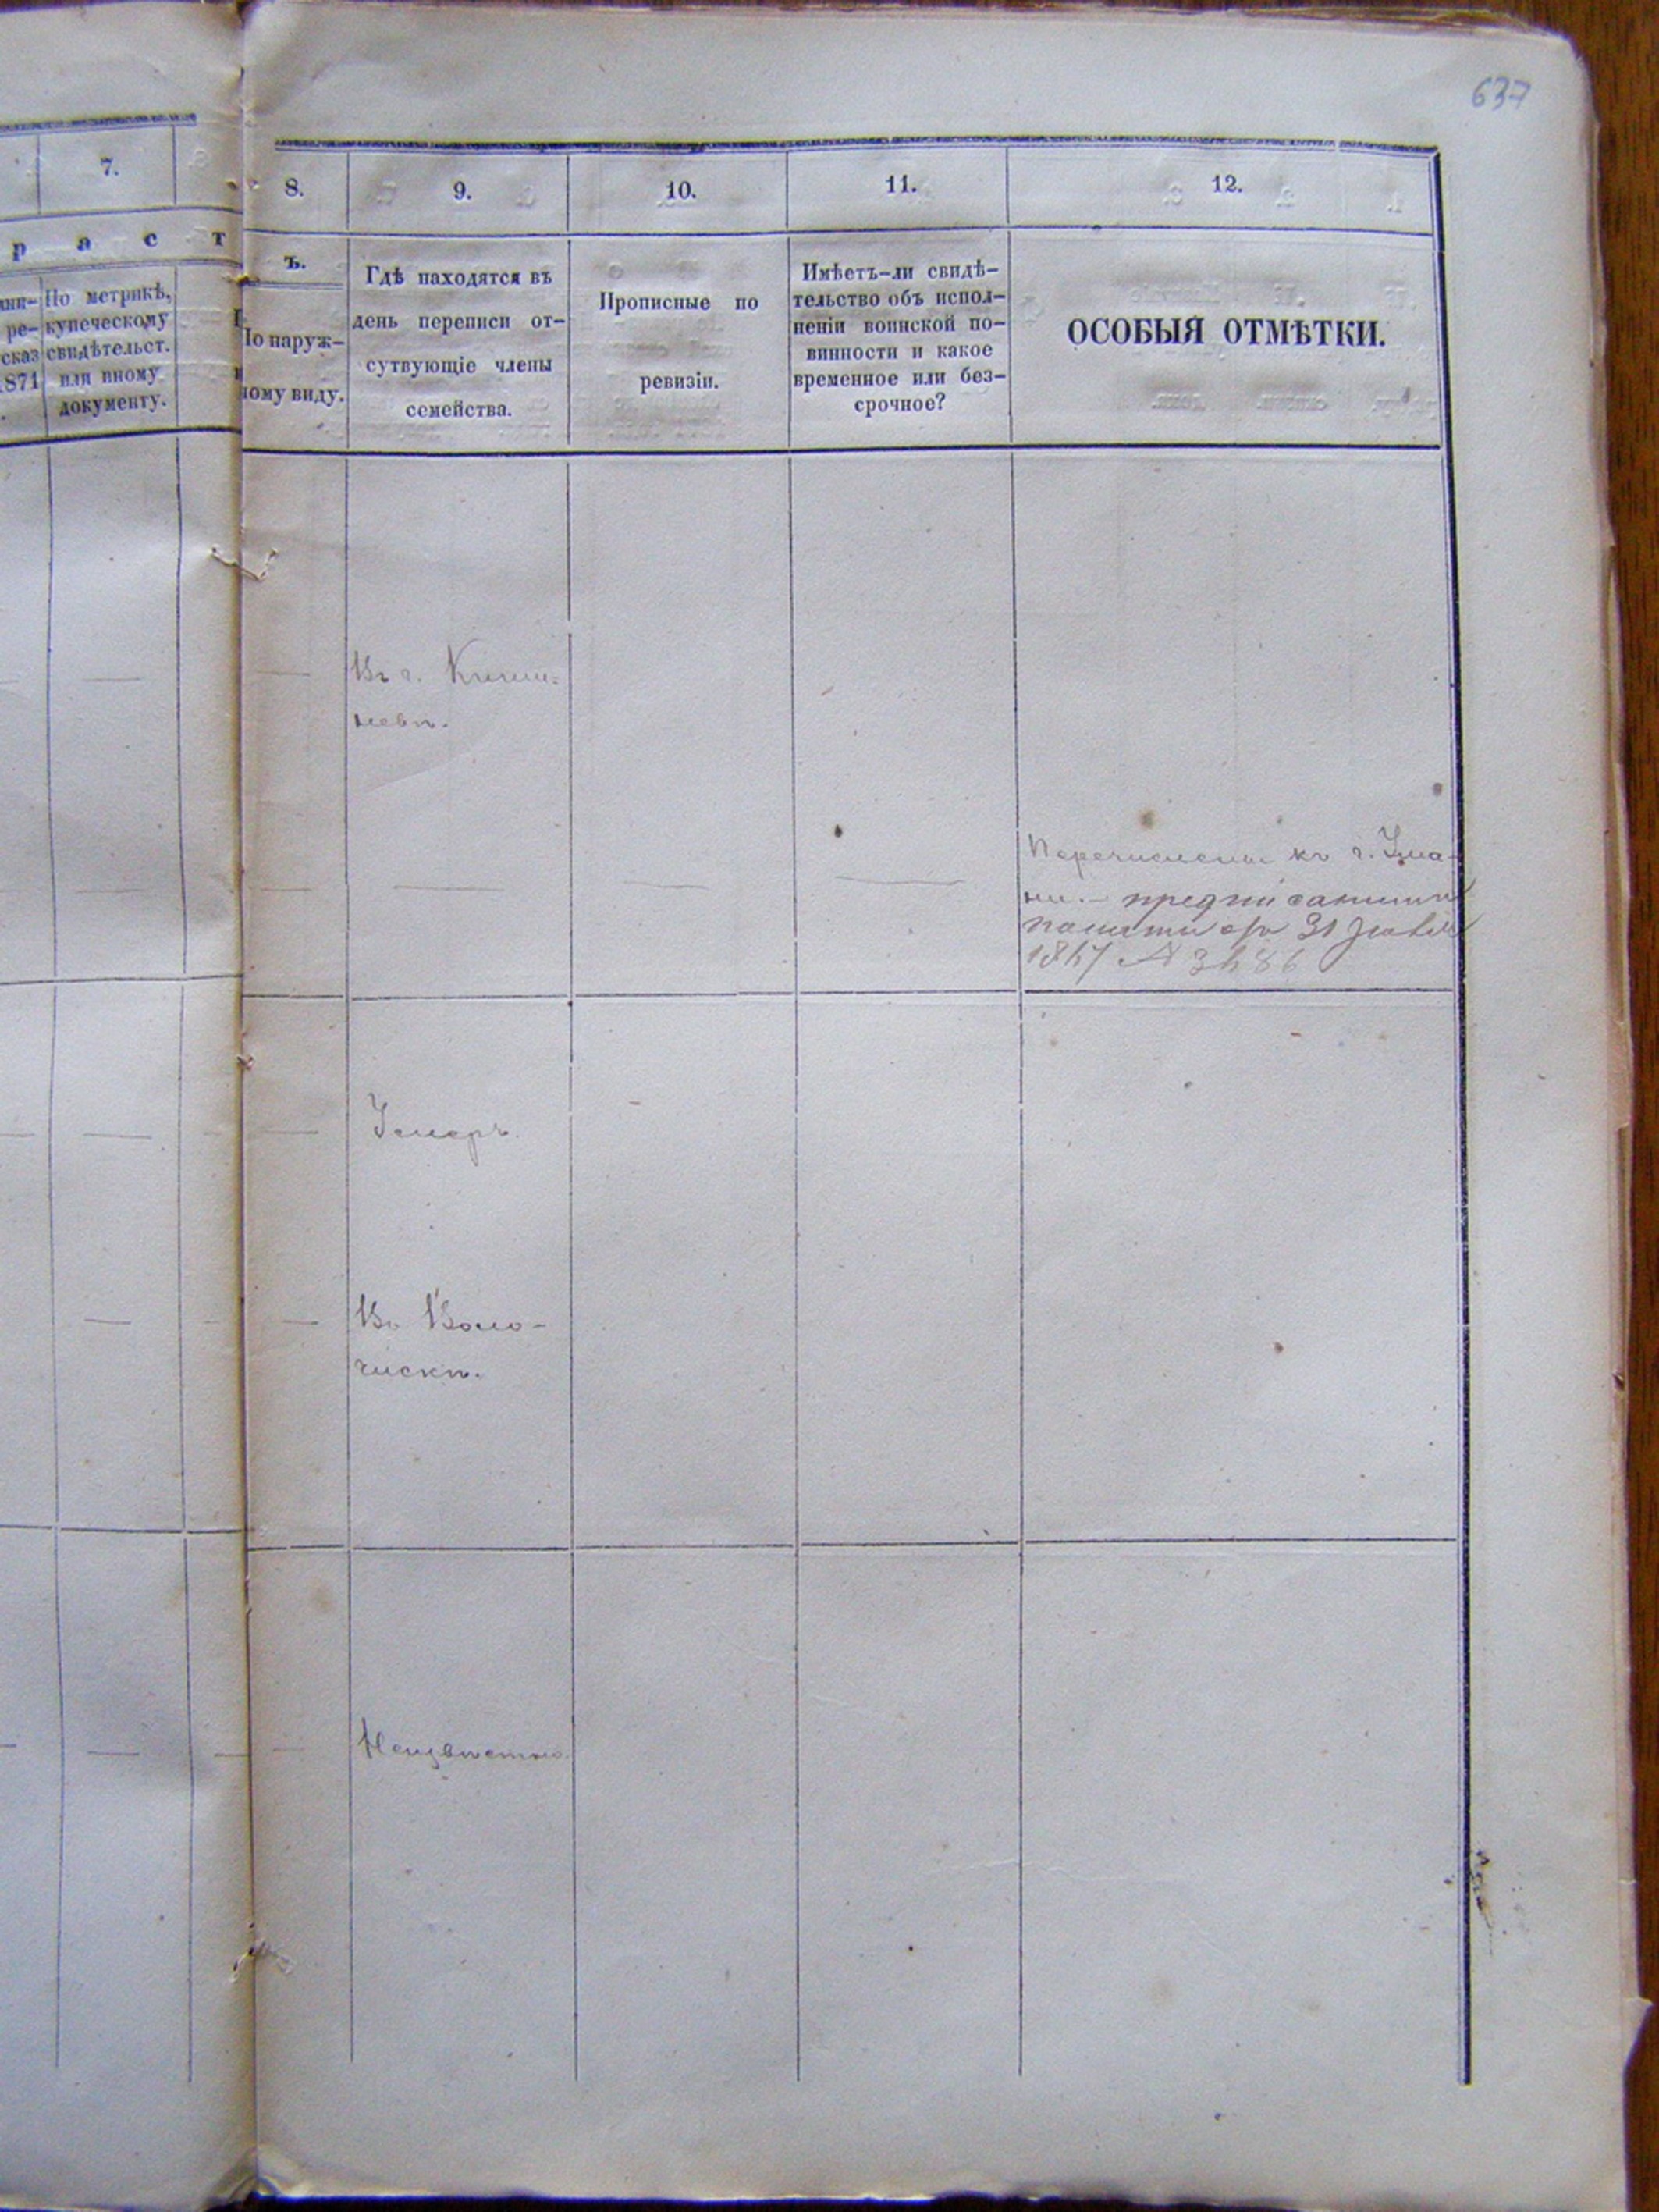 637
7.
8.
9.
10.
11.
12.
р а с т
ъ.
По метрикѣ,
купеческому
свидѣтельст.
или иному
документу.
1871
По наруж-
ному виду.
Гдѣ находятся въ
день переписи от-
сутвующіе члены
семейства.
Прописные по
ревизіи.
Имѣетъ-ли свидѣ-
тельство объ испол-
неніи воинской по-
винности и какое
временное или без-
срочное?
ОСОБЫЯ ОТМѢТКИ.
Въ г. Киши-
невѣ.
Перечислены къ г. Ума-
ни. —
31
Умеръ.
Въ Воло-
чискѣ.
Неизвѣстно.